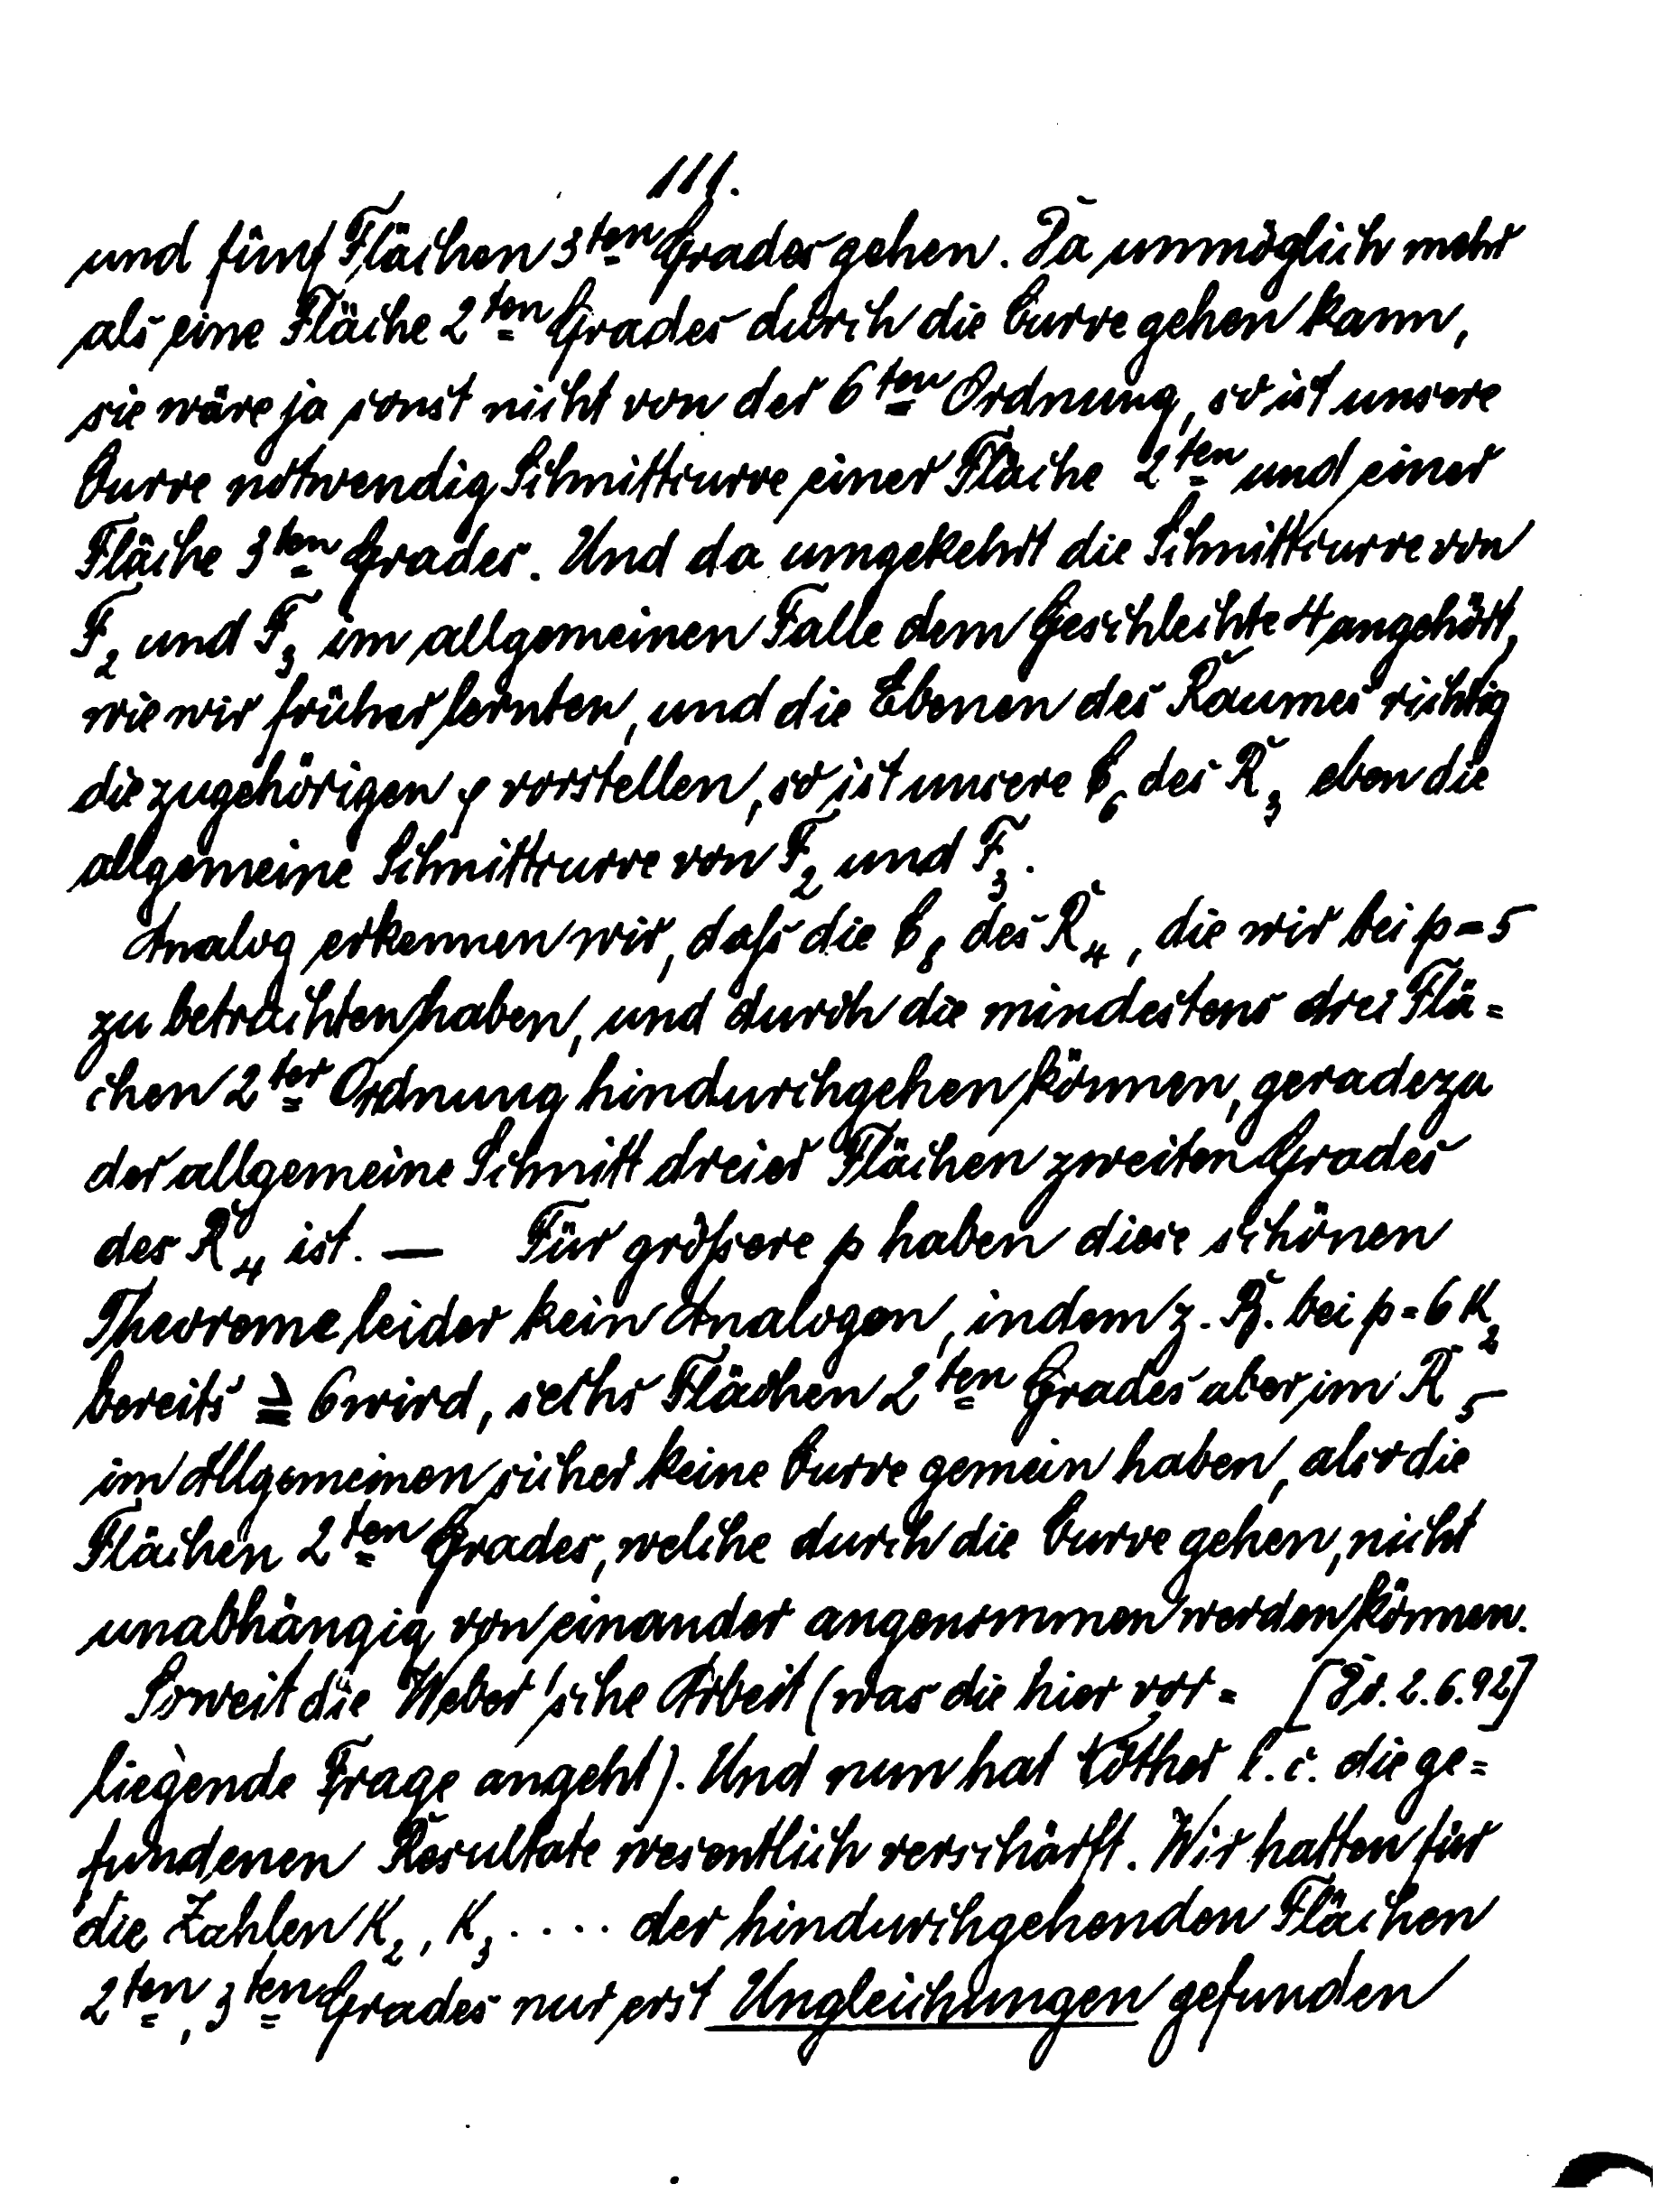 111.
und fünf Flächen 3ten Grades gehen. Da unmöglich mehr
als eine Fläche 2ten Grades durch die Curve gehen kann,
sie wäre ja sonst nicht von der 6ten Ordnung, so ist unsere
Curve notwendig Schnittcurve einer Fläche 2ten und einer
Fläche 3ten Grades. Und da umgekehrt die Schnittcurve von
F₂ und F₃ im allgemeinen Falle dem Geschlechte 4 angehört,
wie wir früher lernten, und die Ebenen des Raumes richtig
die zugehörigen φ vorstellen, so ist unsere C₆ des R₃ eben die
allgemeine Schnittcurve von F₂ und F₃.
Analog erkennen wir, daſs die C₈ des R₄, die wir bei p=5
zu betrachten haben, und durch die mindestens drei Flä=
chen 2ter Ordnung hindurchgehen können, geradezu
der allgemeine Schnitt dreier Flächen zweiten Grades
des R₄ ist. — Für gröſsere p haben diese schönen
Theoreme leider kein Analogon, indem z. B. bei p=6 K₂
bereits ≧ 6 wird, sechs Flächen 2ten Grades aber im R₅
im Allgemeinen sicher keine Curve gemein haben, also die
Flächen 2ten Grades, welche durch die Curve gehen, nicht
unabhängig von einander angenommen werden können.
Soweit die Weber'sche Arbeit (was die hier vor= [Do. 2.6.92]
liegende Frage angeht). Und nun hat Nöther l. c. die ge=
fundenen Resultate wesentlich verschärft. Wir hatten für
die Zahlen K₂, K₃ .... der hindurchgehenden Flächen
2ten, 3ten Grades nur erst Ungleichungen gefunden